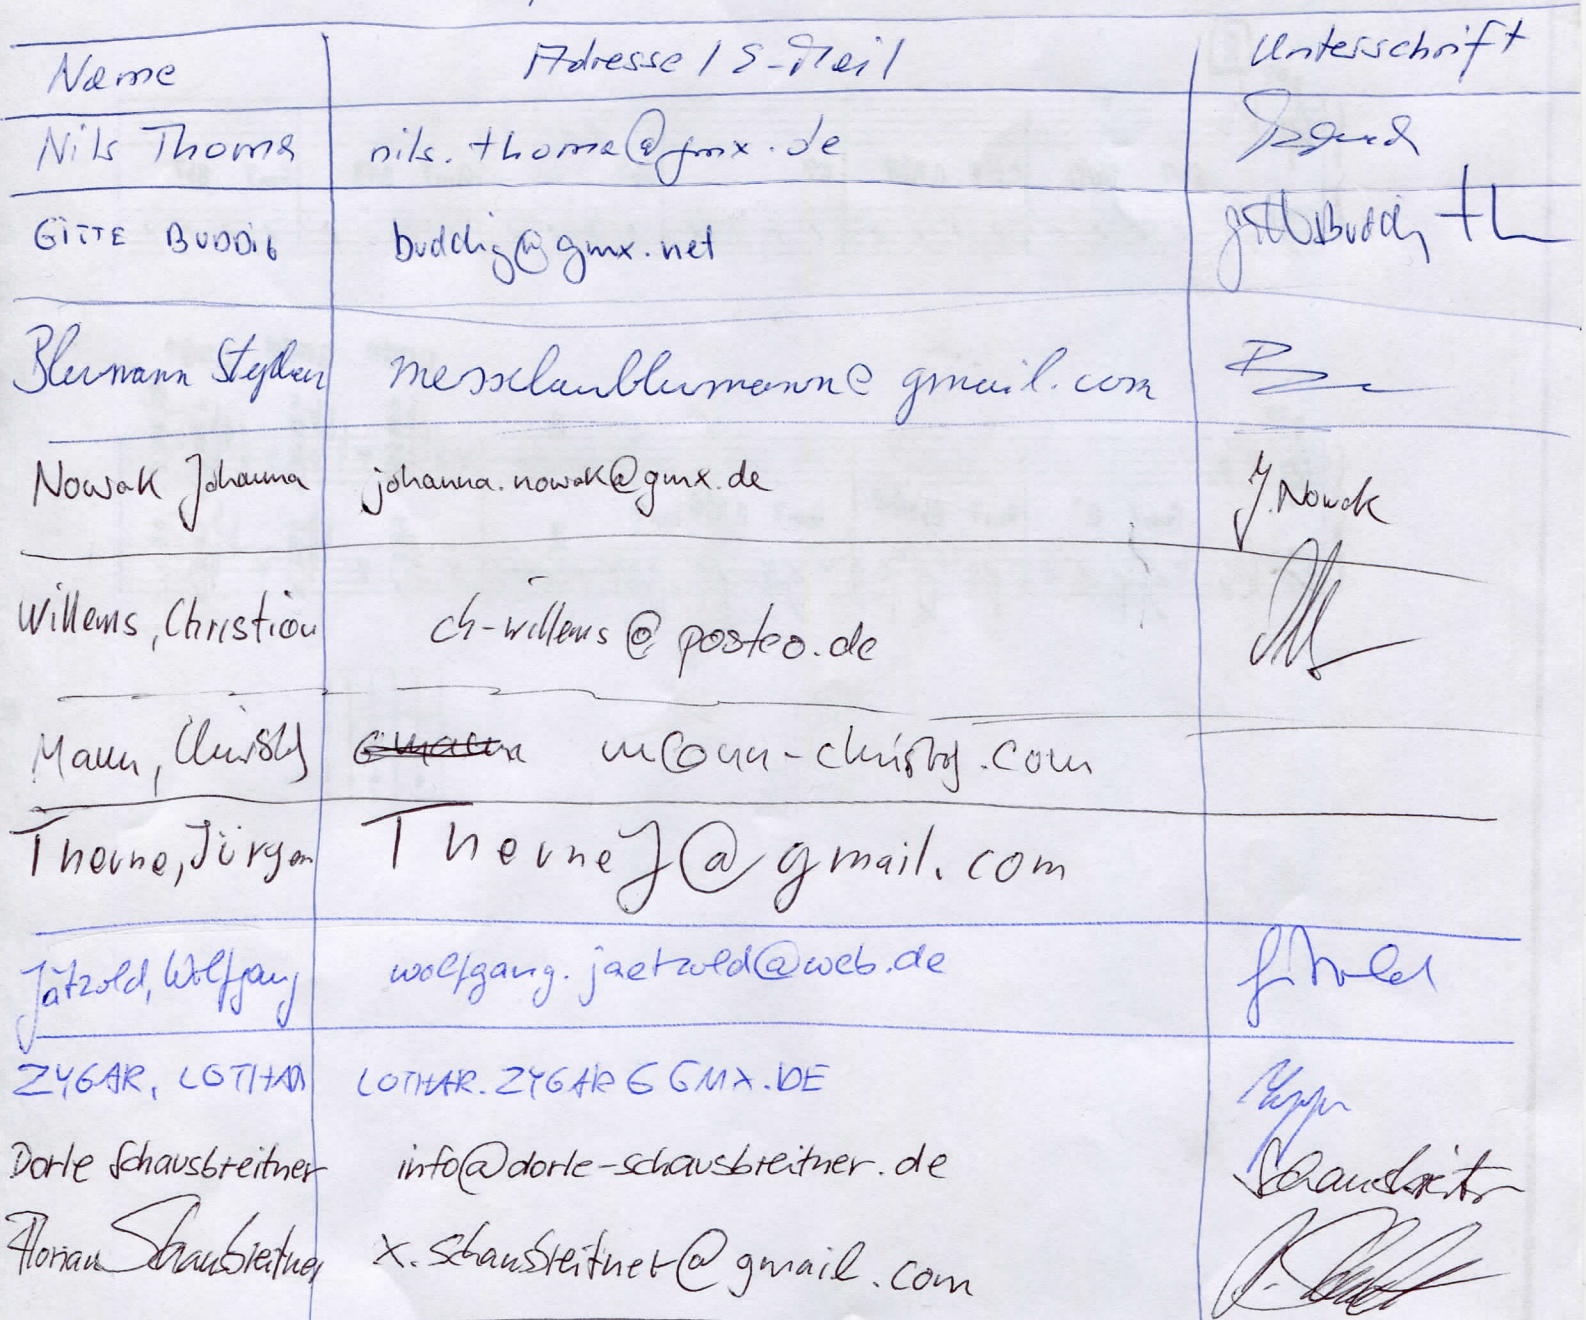 Name Adresse / E-Mail Unterschrift
Nils Thoma nils.thoma@gmx.de
GITTE BUDDIG buddig@gmx.net
Blumann Stephan messelaublumann@gmail.com
Nowak Johanna johanna.nowak@gmx.de J. Nowak
Willems, Christian ch-willems@posteo.de
Mann, Christof m@nn-christof.com
Theune, Jürgen TheuneJ@gmail.com
Jätzold, Wolfgang wolfgang.jaetzold@web.de
ZYGAR, LOTHAR LOTHAR.ZYGAR@GMX.DE
Dorle Schausbreitner info@dorle-schausbreitner.de Schausbreitner
Florian Schausbreitner x.schausbreitner@gmail.com